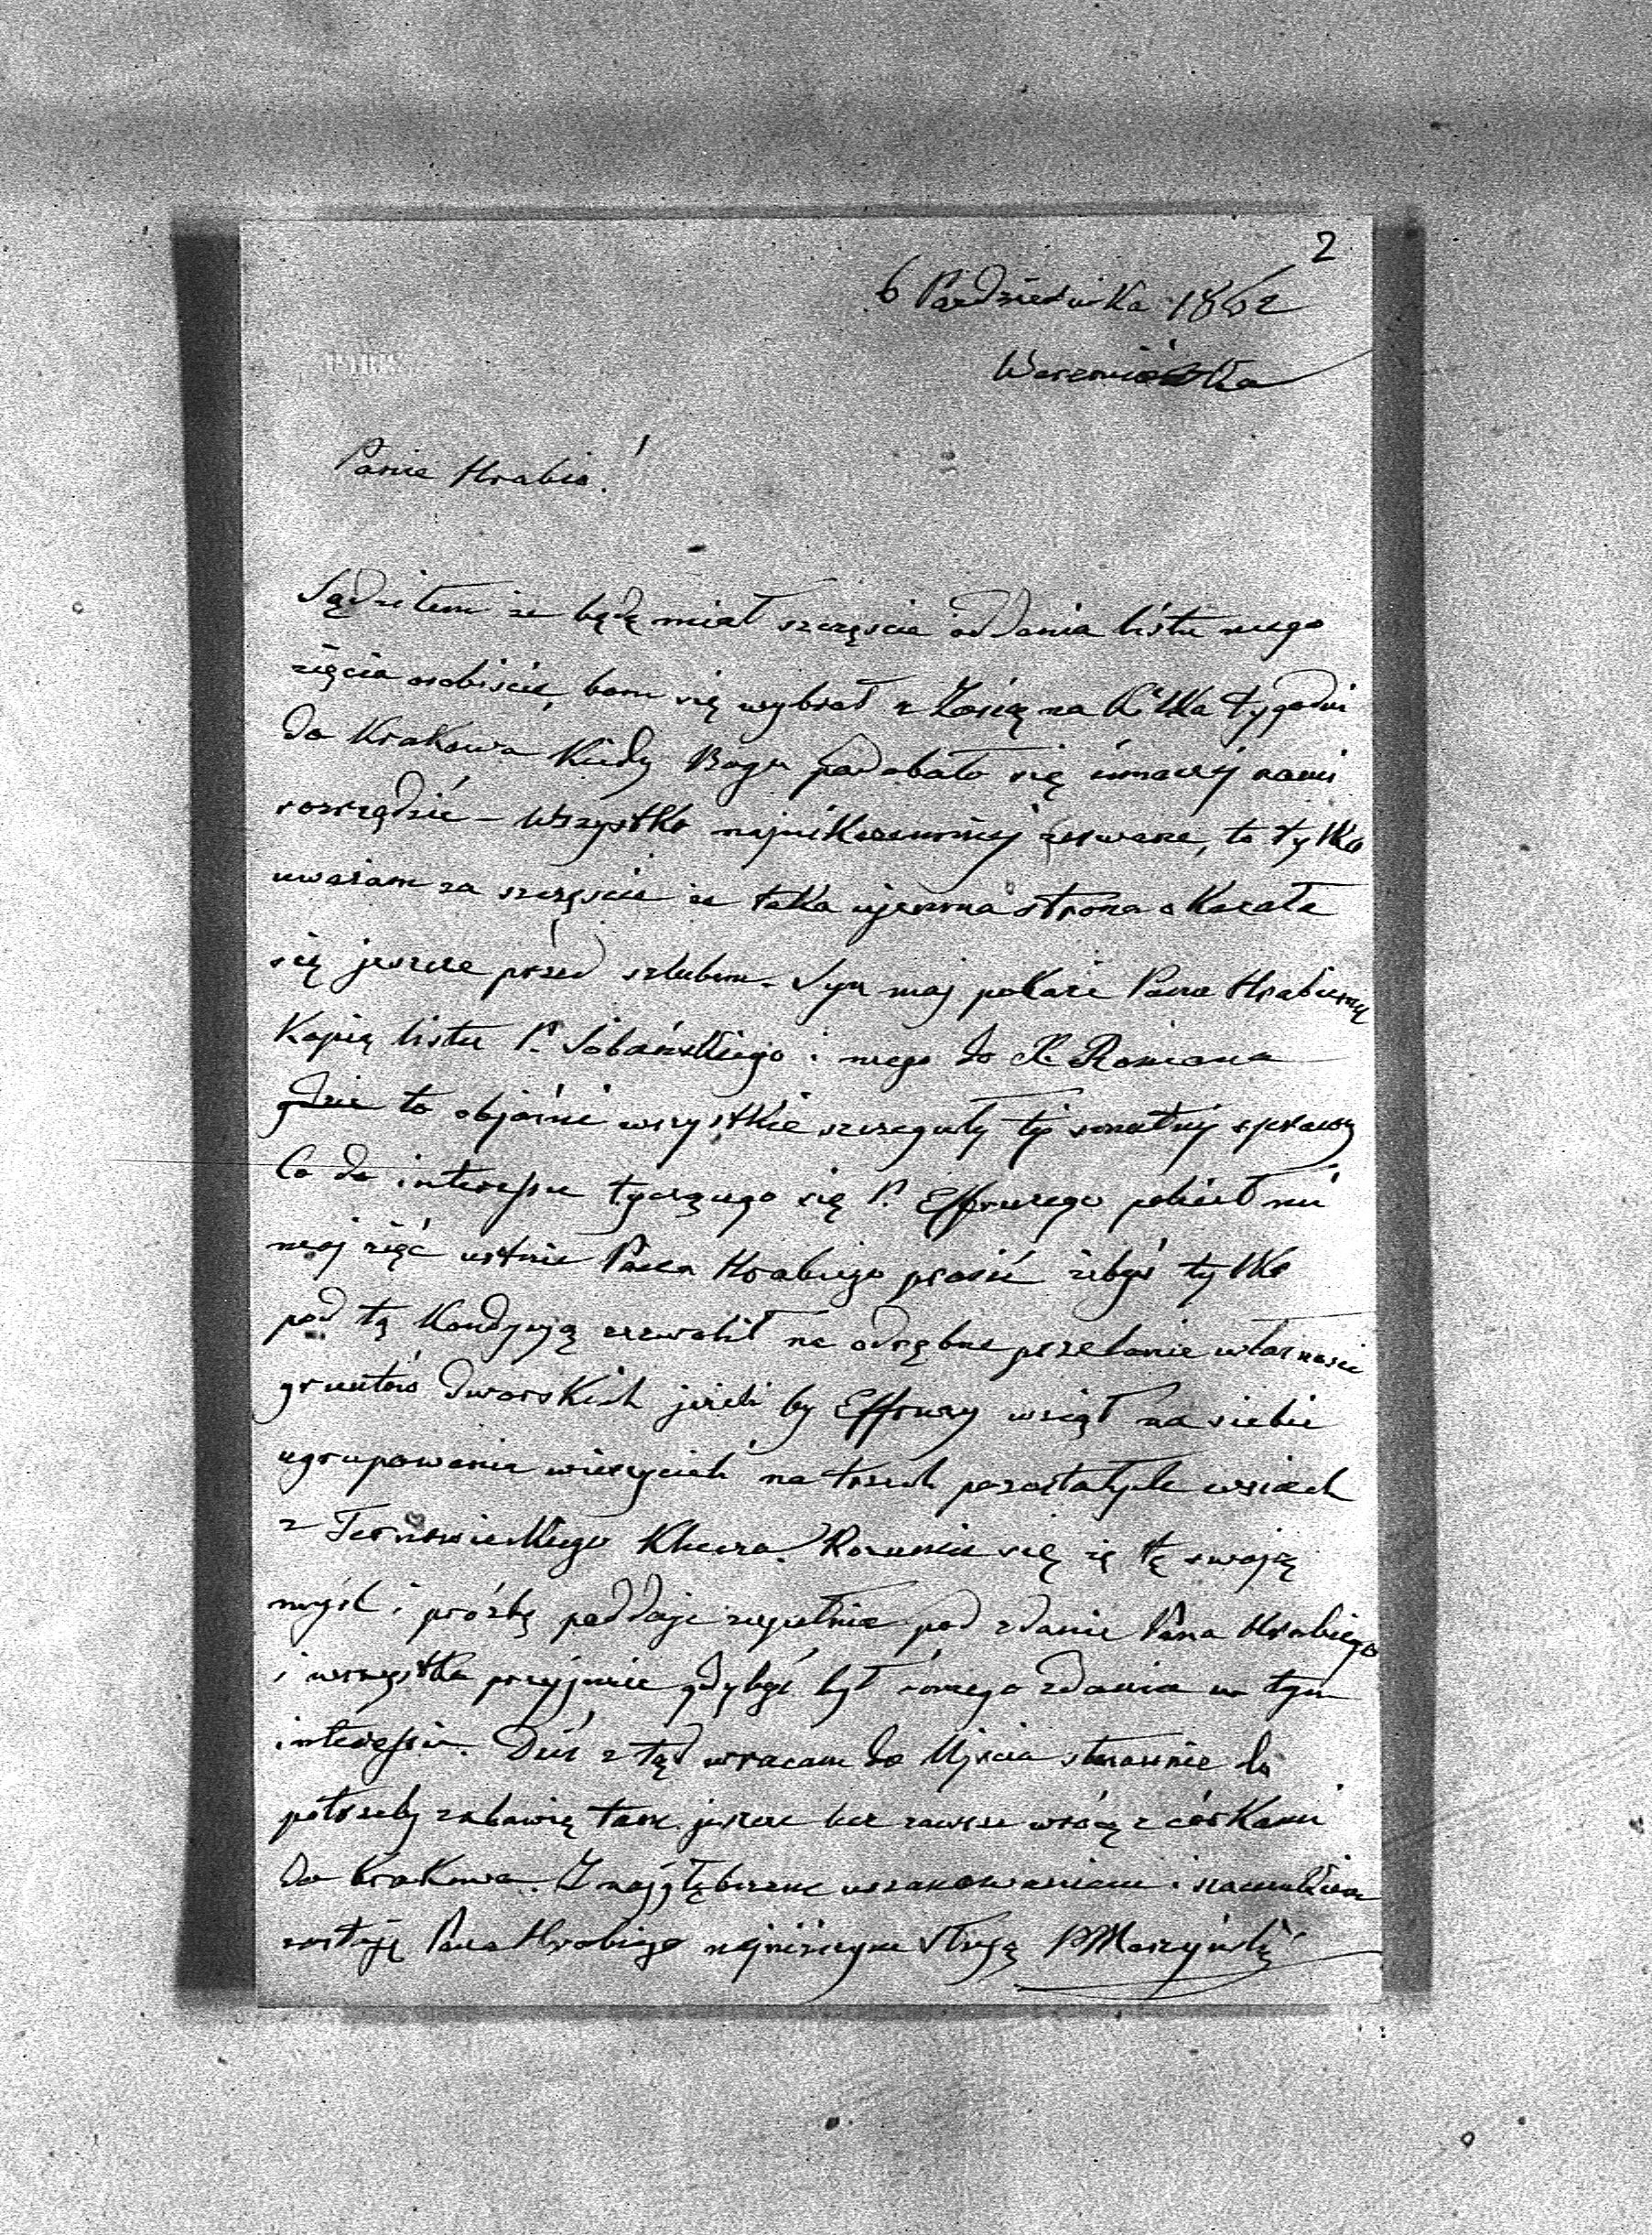 2
6 Października 1862
Panie Hrabio!
Sądziłem że będę miał szczęście oddania listu mego
zięcia osobiście, bom się wybrał z Zosią na kilka tygodni
do Krakowa kiedy Bogu podobało się inaczej nami
rozrządzić – Wszystko najnikczemniej zerwane, to tylko
uważam za szczęście że taka ujemna strona okazała
się jeszcze przed szlubem. Syn mój pokaże Panu Hrabiemu
Kopią listu P. Sobańskiego i mego do X Romana
gdzie to objaśni wszystkie szczeguły tej smutnej sprawy
Co do interesu tyczącego się P. Effrusego polecił mi
mój zięć ustnie Pana Hrabiego prosić żebyś tylko
pod tą kondycją zezwolił na odrębne przelanie własności
gruntów dworskich jeżeli by Effrusy wziął na siebie
ugrupowanie wieczycich na trzech pozostałych wsiach
z Klucza. Rozumie się że tę swoję
myśl i próżbę poddaje zupełnie pod zdanie Pana Hrabiego
i wszystko przyjmie gdybyś był innego zdania w tym
interesie. Dziś z tąd wracam do Ujścia stosownie do
potrzeby zabawię tam jeszcze lecz zawsze wrócę z córkami
do Krakowa. Z najgłębszym uszanowaniem i szacunkiem
zostaję Pana Hrabiego najniższym sługą PMoszyński